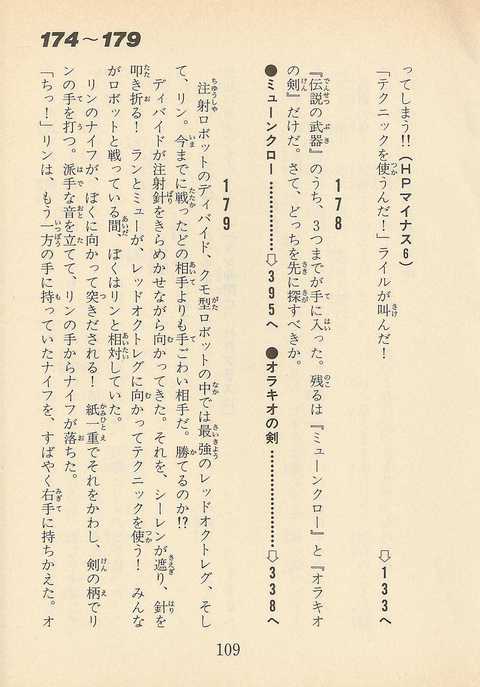 174〜179
ってしまう!!(HPマイナス6)
「テクニックを使うんだ!」ライルが叫んだ!
⇨133へ
178
『伝説の武器』のうち、3つまでが手に入った。残るは『ミューンクロー』と『オラキオ
の剣』だけだ。さて、どっちを先に探すべきか。
●ミューンクロー…………⇨395へ ●オラキオの剣…………⇨338へ
179
注射ロボットのディバイド、クモ型ロボットの中では最強のレッドオクトレグ、そし
て、リン。今までに戦ったどの相手よりも手ごわい相手だ。勝てるのか!?
ディバイドが注射針をきらめかせながら向かってきた。それを、シーレンが遮り、針を
叩き折る! ランとミューが、レッドオクトレグに向かってテクニックを使う! みんな
がロボットと戦っている間、ぼくはリンと相対していた。
リンのナイフが、ぼくに向かって突きだされる! 紙一重でそれをかわし、剣の柄でリ
ンの手を打つ。派手な音を立てて、リンの手からナイフが落ちた。
「ちっ!」リンは、もう一方の手に持っていたナイフを、すばやく右手に持ちかえた。オ
109